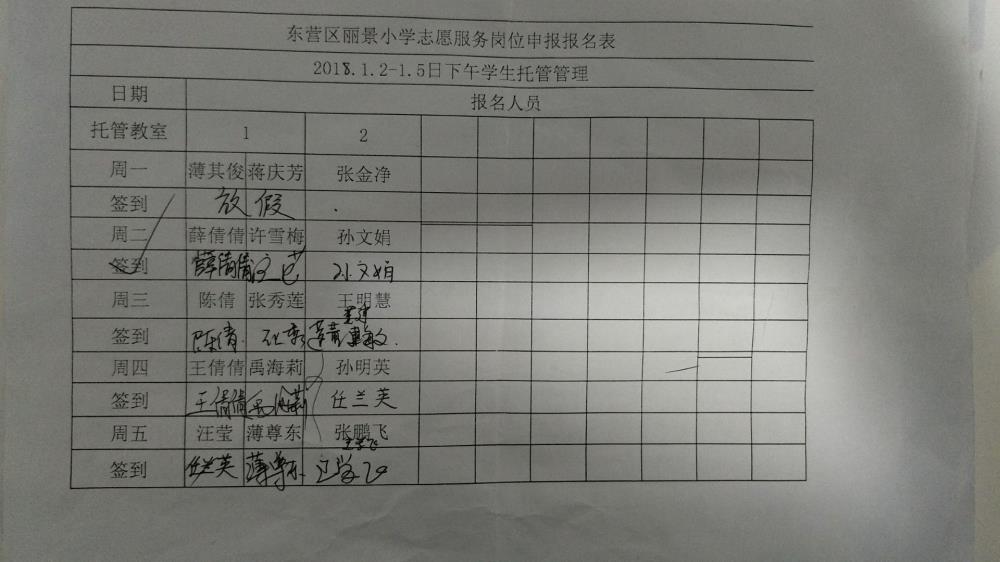 东营区丽景小学志愿服务岗位申报报名表
2018.1.2-1.5日下午学生托管管理
日期 报名人员
托管教室 1 2
周一 薄其俊 蒋庆芳 张金净
签到 放假
周二 薛倩倩 许雪梅 孙文娟
签到 薛倩倩 孙文娟
周三 陈倩 张秀莲 王明慧
签到 陈倩
周四 王倩倩 禹海莉 孙明英
签到 王倩倩 禹海莉 任兰英
周五 汪莹 薄尊东 张鹏飞
签到 任兰英 薄尊东